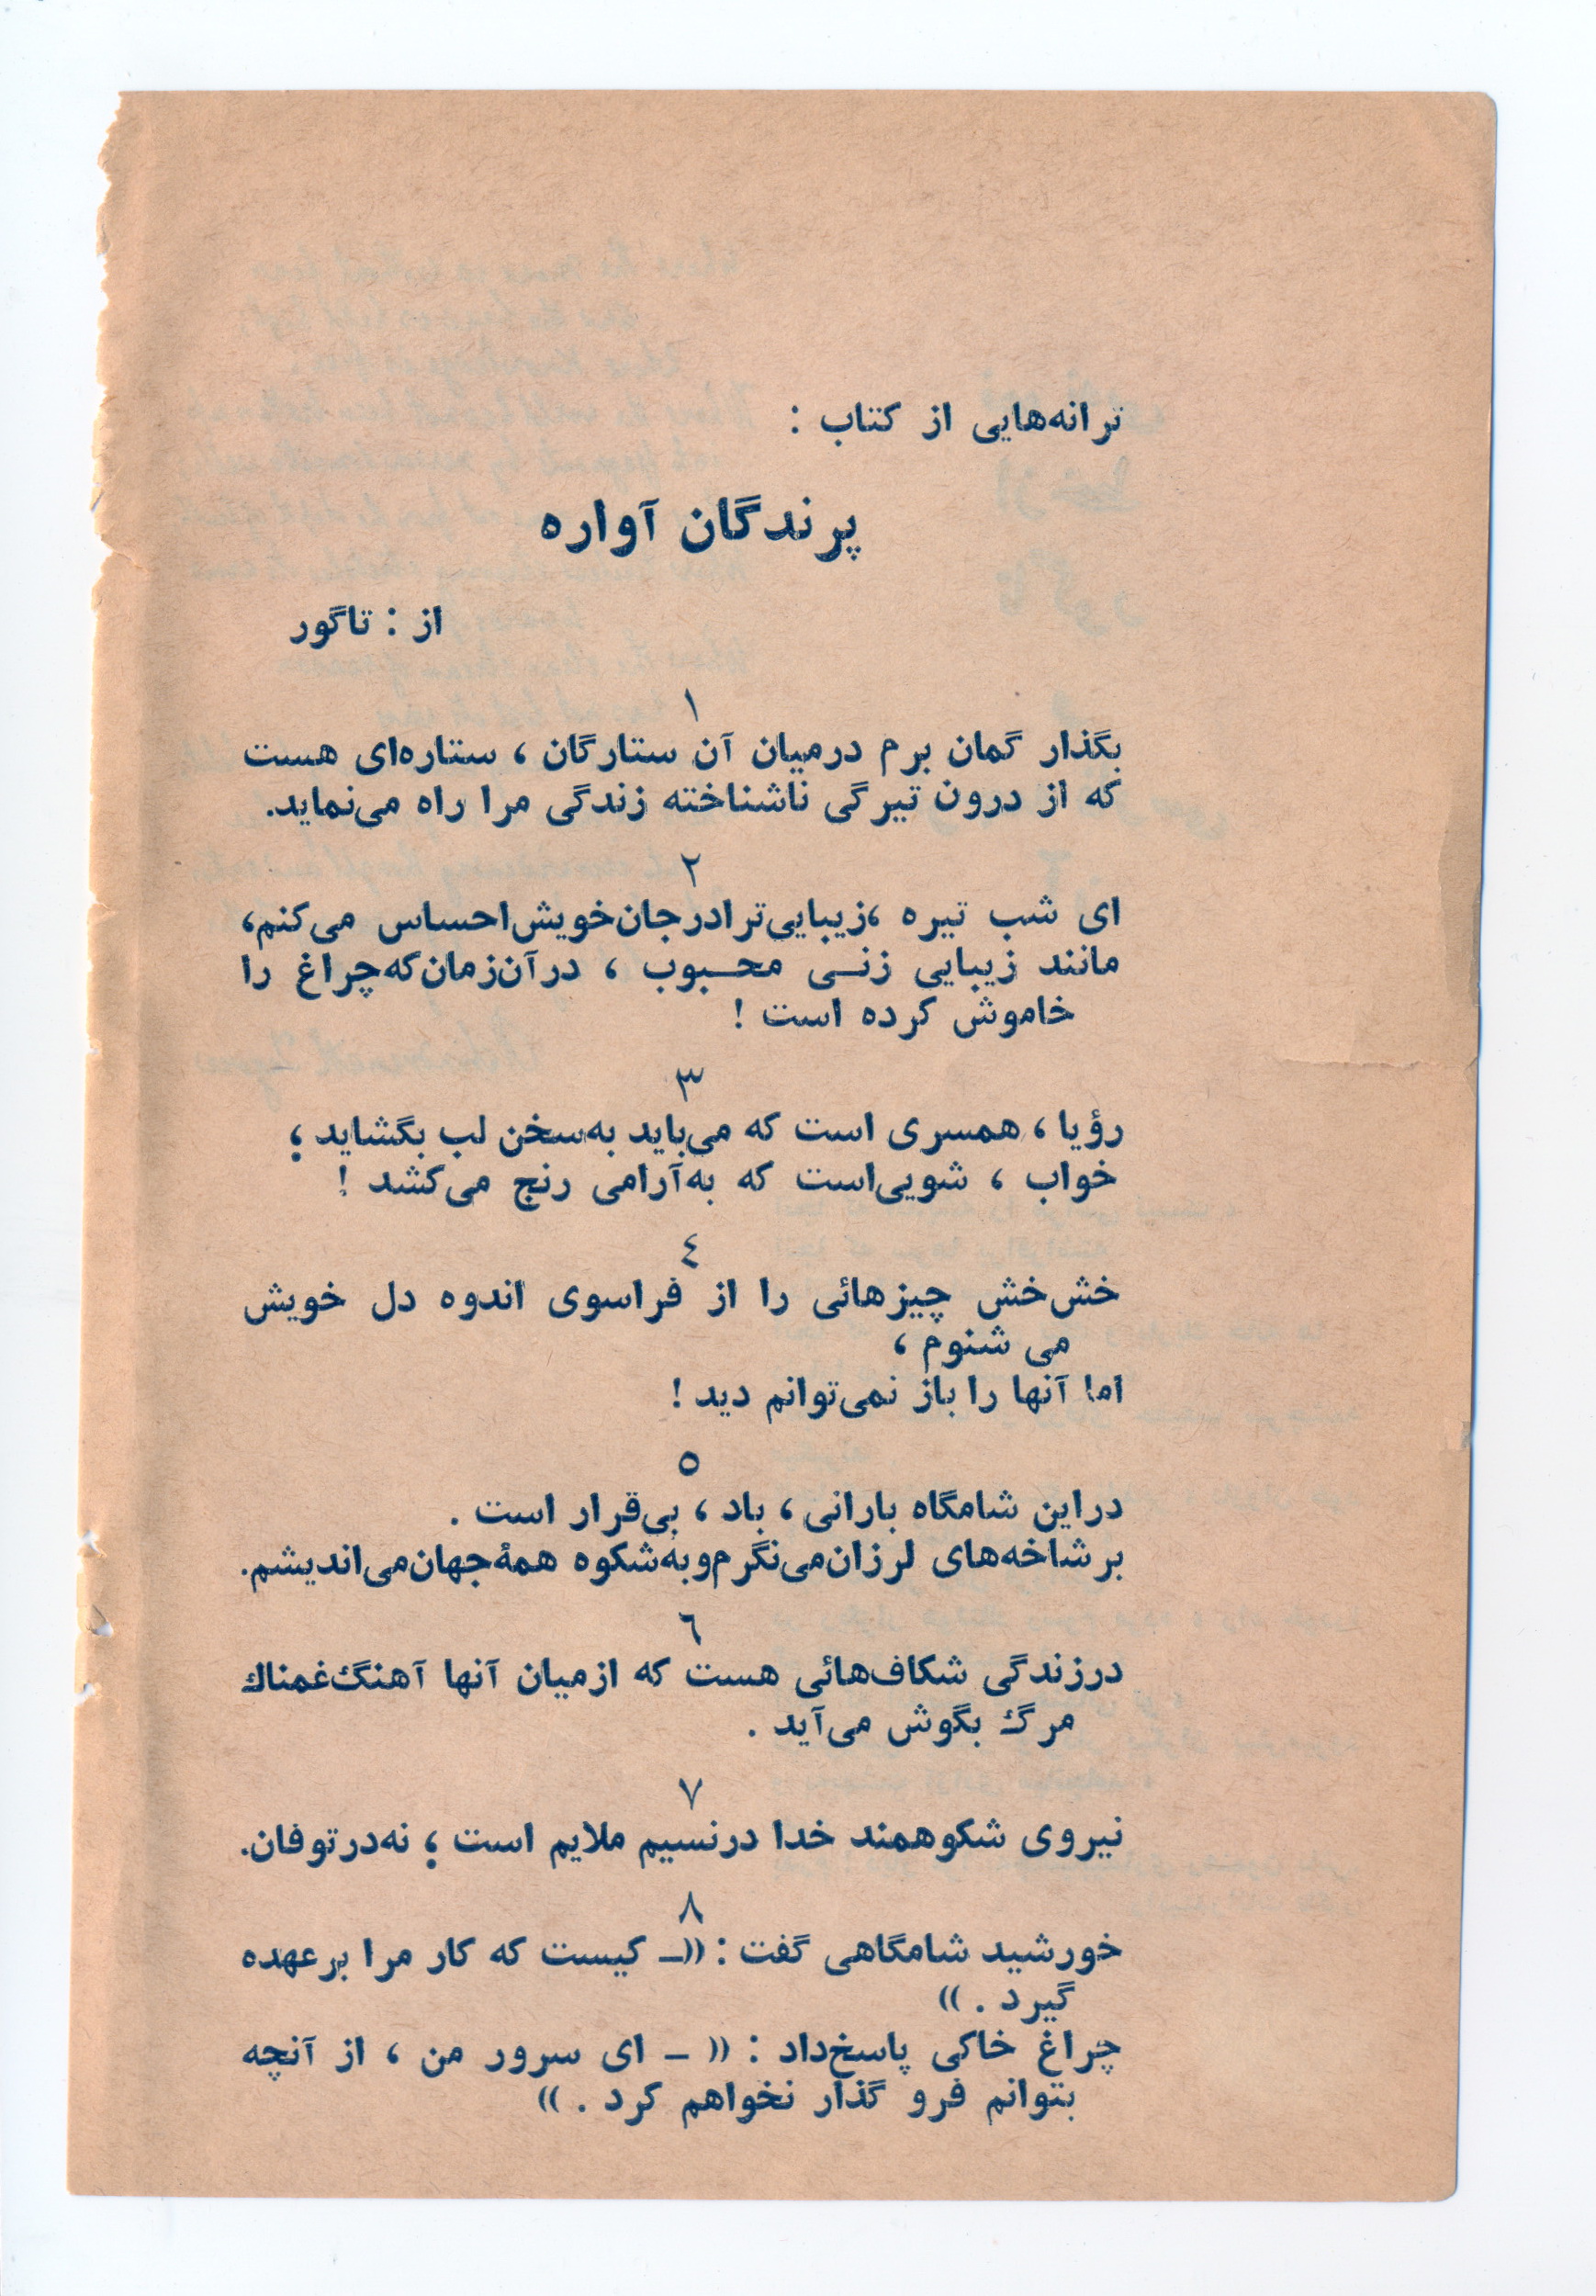 ترانه‌هایی از کتاب :
پرندگان آواره
از : تاگور
۱
بگذار گمان برم درمیان آن ستارگان ، ستاره‌ای هست
که از درون تیرگی ناشناخته زندگی مرا راه می‌نماید.
۲
ای شب تیره ،زیبایی‌ترادرجان‌خویش‌احساس می‌کنم،
مانند زیبایی زنــی محــبوب ، درآن‌زمان‌که‌چراغ را
خاموش کرده است !
۳
رؤیا ، همسری است که می‌باید به‌سخن لب بگشاید ؛
خواب ، شویی‌است که به‌آرامی رنج می‌کشد !
٤
خش‌خش چیزهائی را از فراسوی اندوه دل خویش
می شنوم ،
اما آنها را باز نمی‌توانم دید !
٥
دراین شامگاه بارانی ، باد ، بی‌قرار است .
برشاخه‌های لرزان‌می‌نگرم‌وبه‌شکوه همهٔ‌جهان‌می‌اندیشم.
٦
درزندگی شکاف‌هائی هست که ازمیان آنها آهنگ‌غمناك
مرگ بگوش می‌آید .
۷
نیروی شکوهمند خدا درنسیم ملایم است ؛ نه‌درتوفان.
۸
خورشید شامگاهی گفت : ((ـ کیست که کار مرا برعهده
گیرد . ))
چراغ خاکی پاسخ‌داد : (( ـ ای سرور من ، از آنچه
بتوانم فرو گذار نخواهم کرد . ))